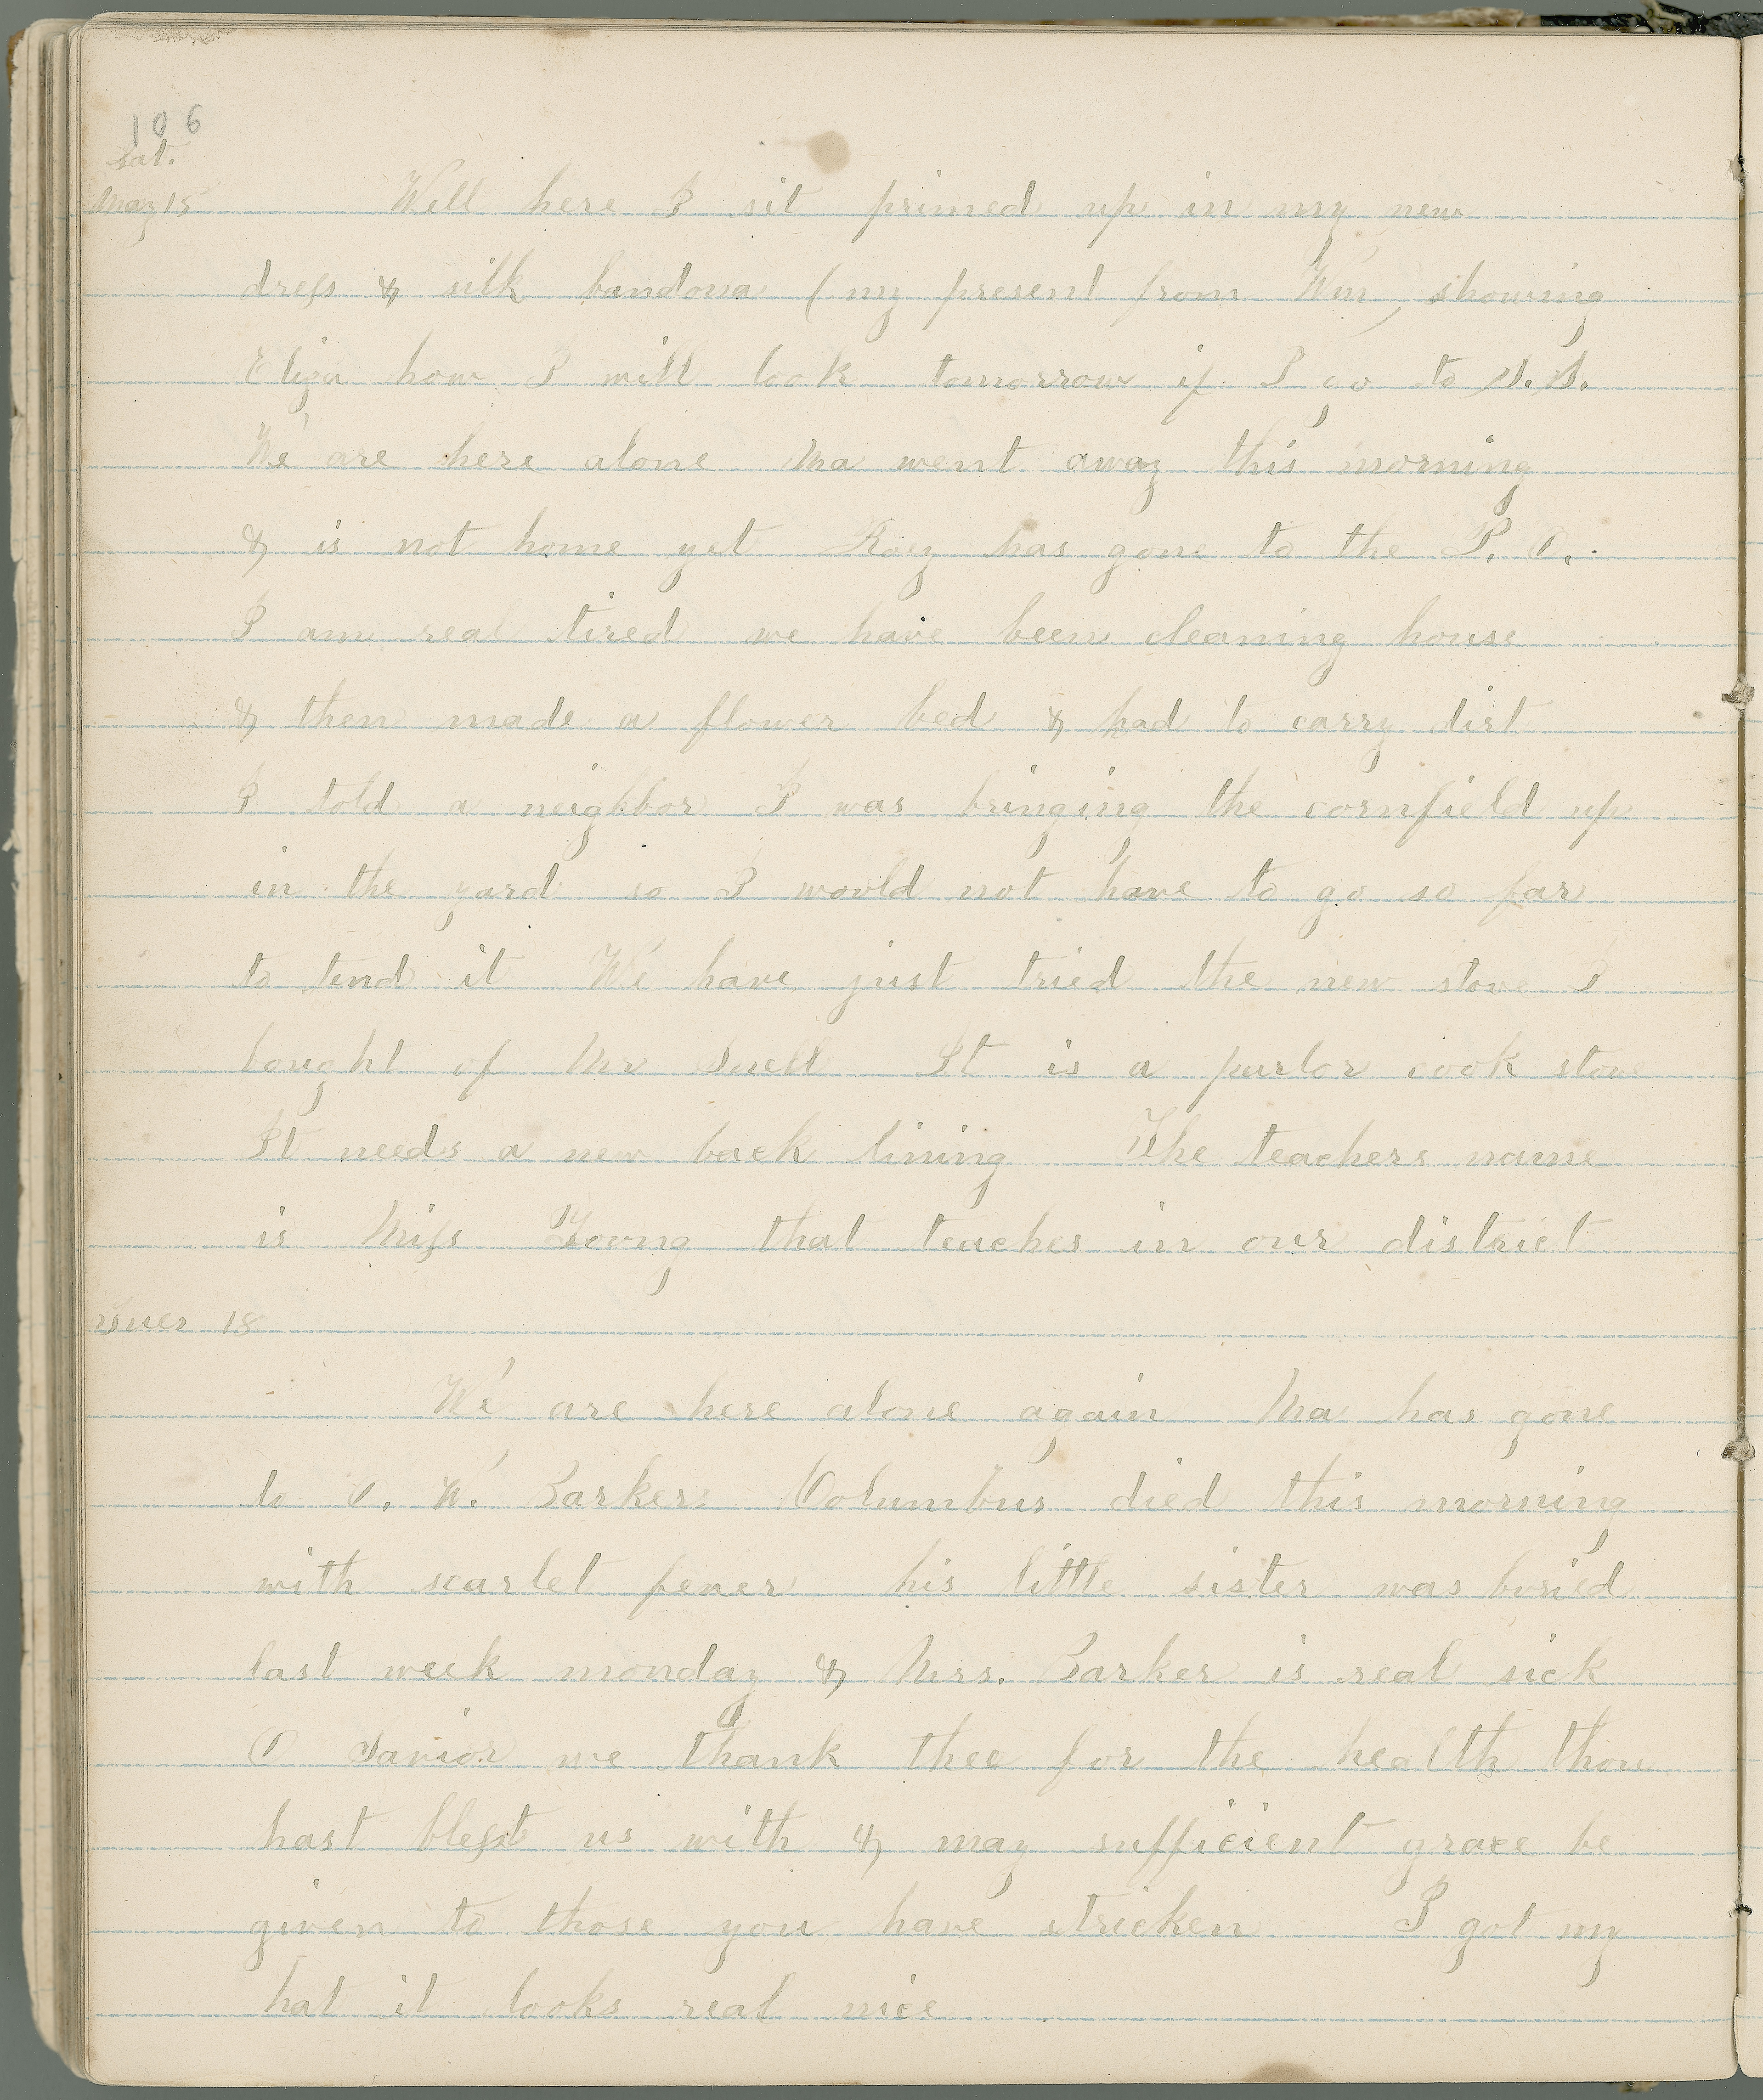 106
sat.
May 15 Well here I sit primed up in my new
dress & silk bandona (my present from Wm) showing
Eliza how I will look tomorrow if I go to S.S.
We are here alone Ma went away this morning
& is not home yet Roey has gone to the P. O.
I am real tired we have been cleaning house
& then made a flower bed & had to carry dirt
I told a neighbor I was bringing the cornfield up
in the yard so I would not have to go so far
to tend it We have just tried the new stove I
bought of Mr Snell It is a parlor cook stove
It needs a new back lining The teachers name
is Miss Young that teaches in our district
18
We are here alone again Ma has gone
to O. W. Barkers Columbus died this morning
with scarlet fever his little sister was buried
last week monday & Mrs. Barker is real sick
O Savior we thank thee for the health thou
hast blesst us with & may sufficient grace be
given to those you have stricken I got my
hat it looks real nice